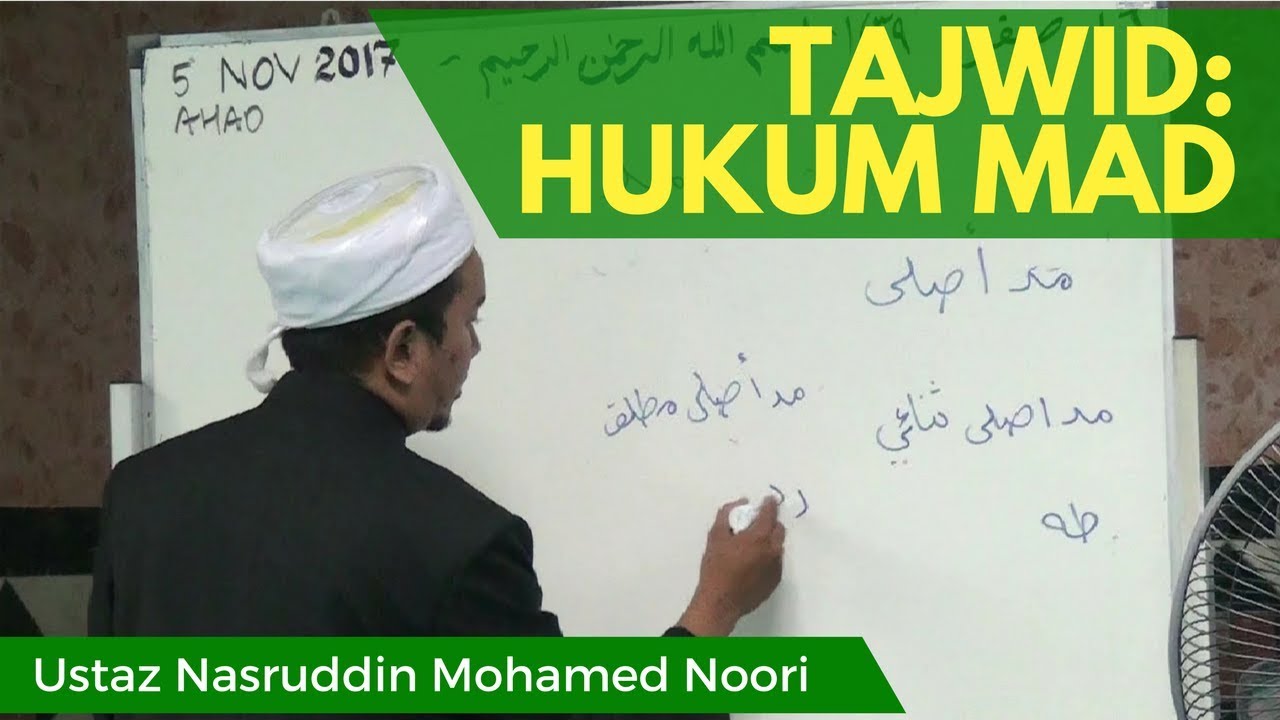 TAJWID:
HUKUM MAD
5 NOV 2017
AHAD
بسم الله الرحمن الرحيم
مد أصلى
مد أصلى مطلق
مد اصلى ثنائي
طه
Ustaz Nasruddin Mohamed Noori